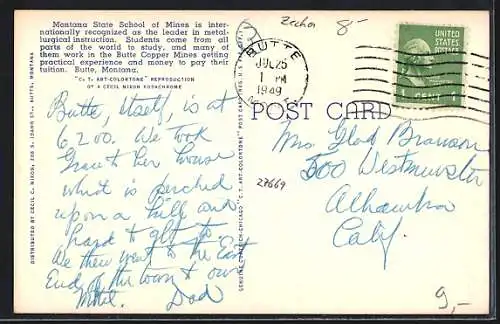 Montana State School of Mines is inter-
nationally recognized as the leader in metal-
lurgical instruction. Students come from all
parts of the world to study, and many of
them work in the Butte Copper Mines getting
practical experience and money to pay their
tuition. Butte, Montana.
"C. T. ART-COLORTONE" REPRODUCTION
OF A CECIL NIXON KODACHROME
Butte, itself, is at
6200. We took
Grace to her house
what is perched
upon a hill and
hard to get to.
We then went to the East
End of the town & our
Motel. Dad
DISTRIBUTED BY CECIL C. NIXON, 205 S. IDAHO ST., BUTTE, MONTANA
8-
BUTTE
JUL 25
1 PM
1949
UNITED
STATES
POSTAGE
1 CENT 1
POST CARD
27669
Mrs. Glad Branson
500 Westminster
Alhambra
Calif.
9,-